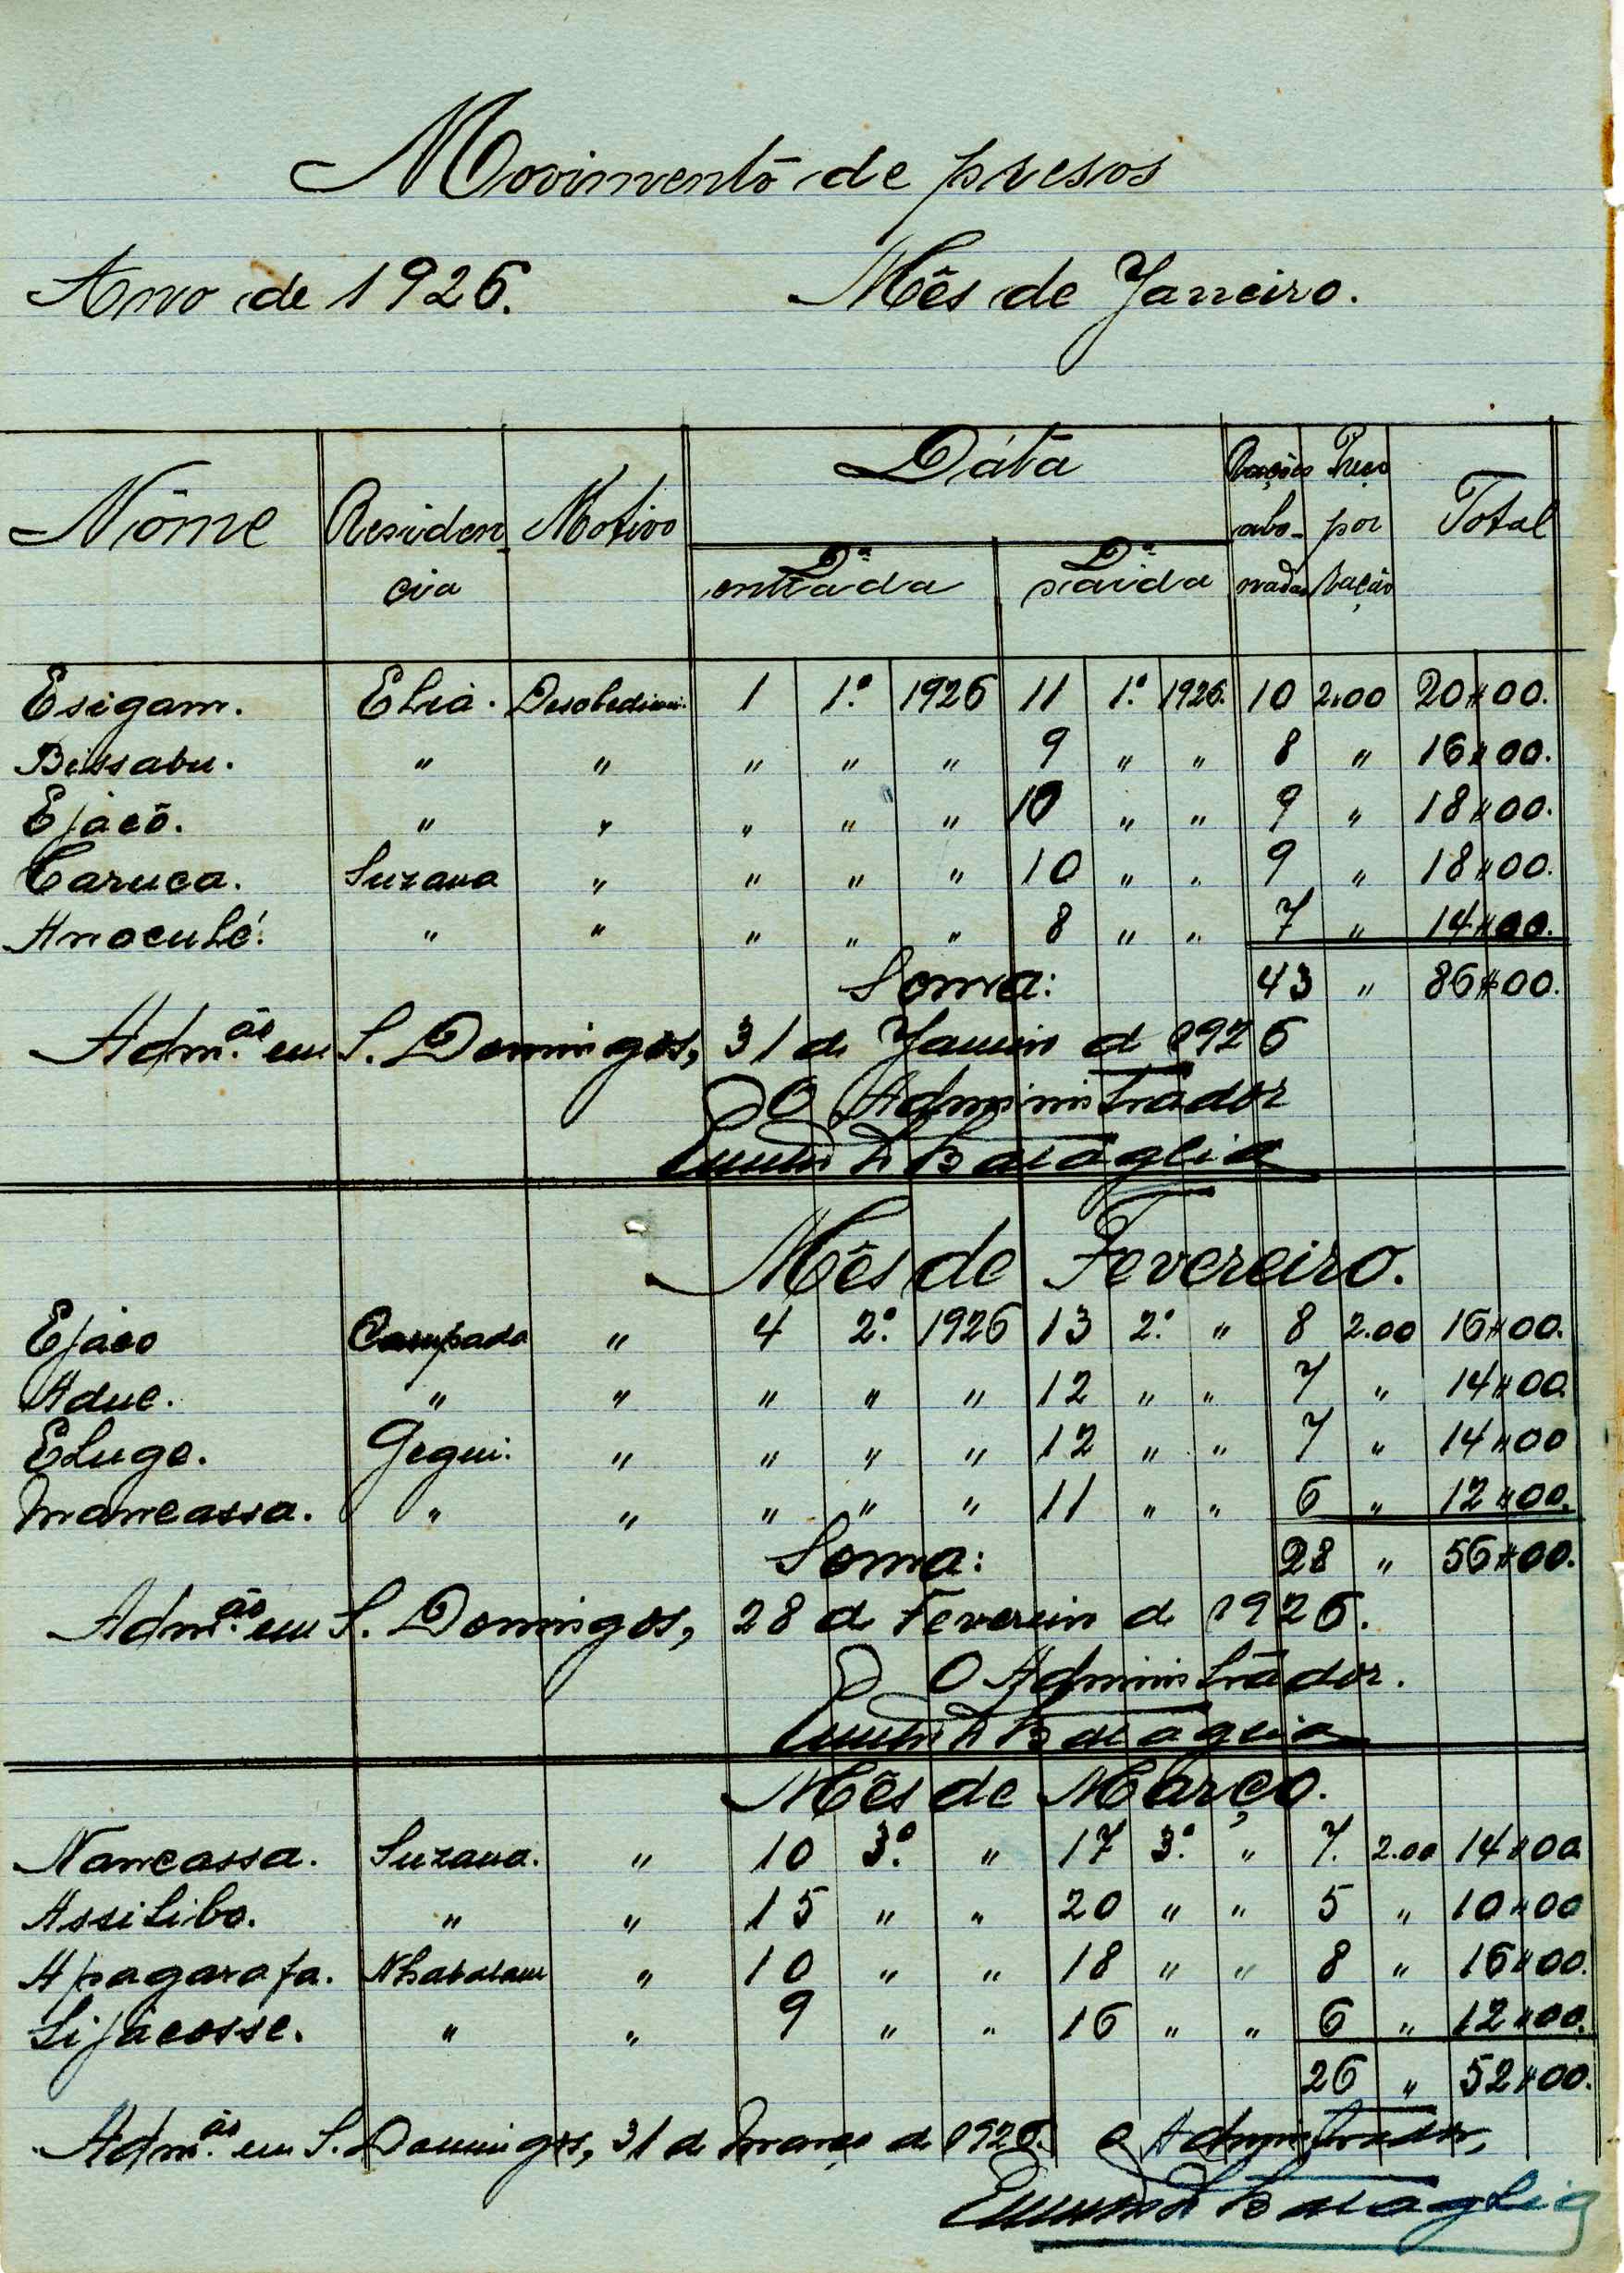 Movimento de presos
Ano de 1926. Mês de Janeiro.
Nôme Residencia Motivo Dáta Rações abonadas Preço por Ração Total
Dª entrada Dª saida
Esigam. Eliá. 1 1.º 1926 11 1.º 1926. 10 2.00 20$00.
Bissabu. " " " " " 9 " " 8 " 16$00.
Ejacô. " " " " " 10 " " 9 " 18$00.
Caruca. Suzana " " " " 10 " " 9 " 18$00.
Anoculé. " " " " " 8 " " 7 " 14$00.
Soma: 43 " 86$00.
Adm.ão em S. Domingos, 31 de Janeiro de 1926
O Administrador
Bataglia
Mês de Fevereiro.
Ejaco " 4 2.º 1926 13 2.º " 8 2.00 16$00.
Adue. " " " " " 12 " " 7 " 14$00
Eluge. Gegui. " " " " 12 " " 7 " 14$00
Mancassa. " " " " " 11 " " 6 " 12$00.
Soma: 28 " 56$00.
Adm.ão em S. Domingos, 28 de Fevereiro de 1926.
O Administrador.
Bataglia
Mês de Março.
Nancassa. Suzana. " 10 3.º " 17 3.º " 7. 2.00 14$00
Assilibo. " " 15 " " 20 " " 5 " 10$00
Apagarafa. " 10 " " 18 " " 8 " 16$00.
Lijacosse. " " 9 " " 16 " " 6 " 12$00.
26 " 52$00.
Adm.ão em S. Domingos, 31 de Março de 1926. O Administrador,
Bataglia